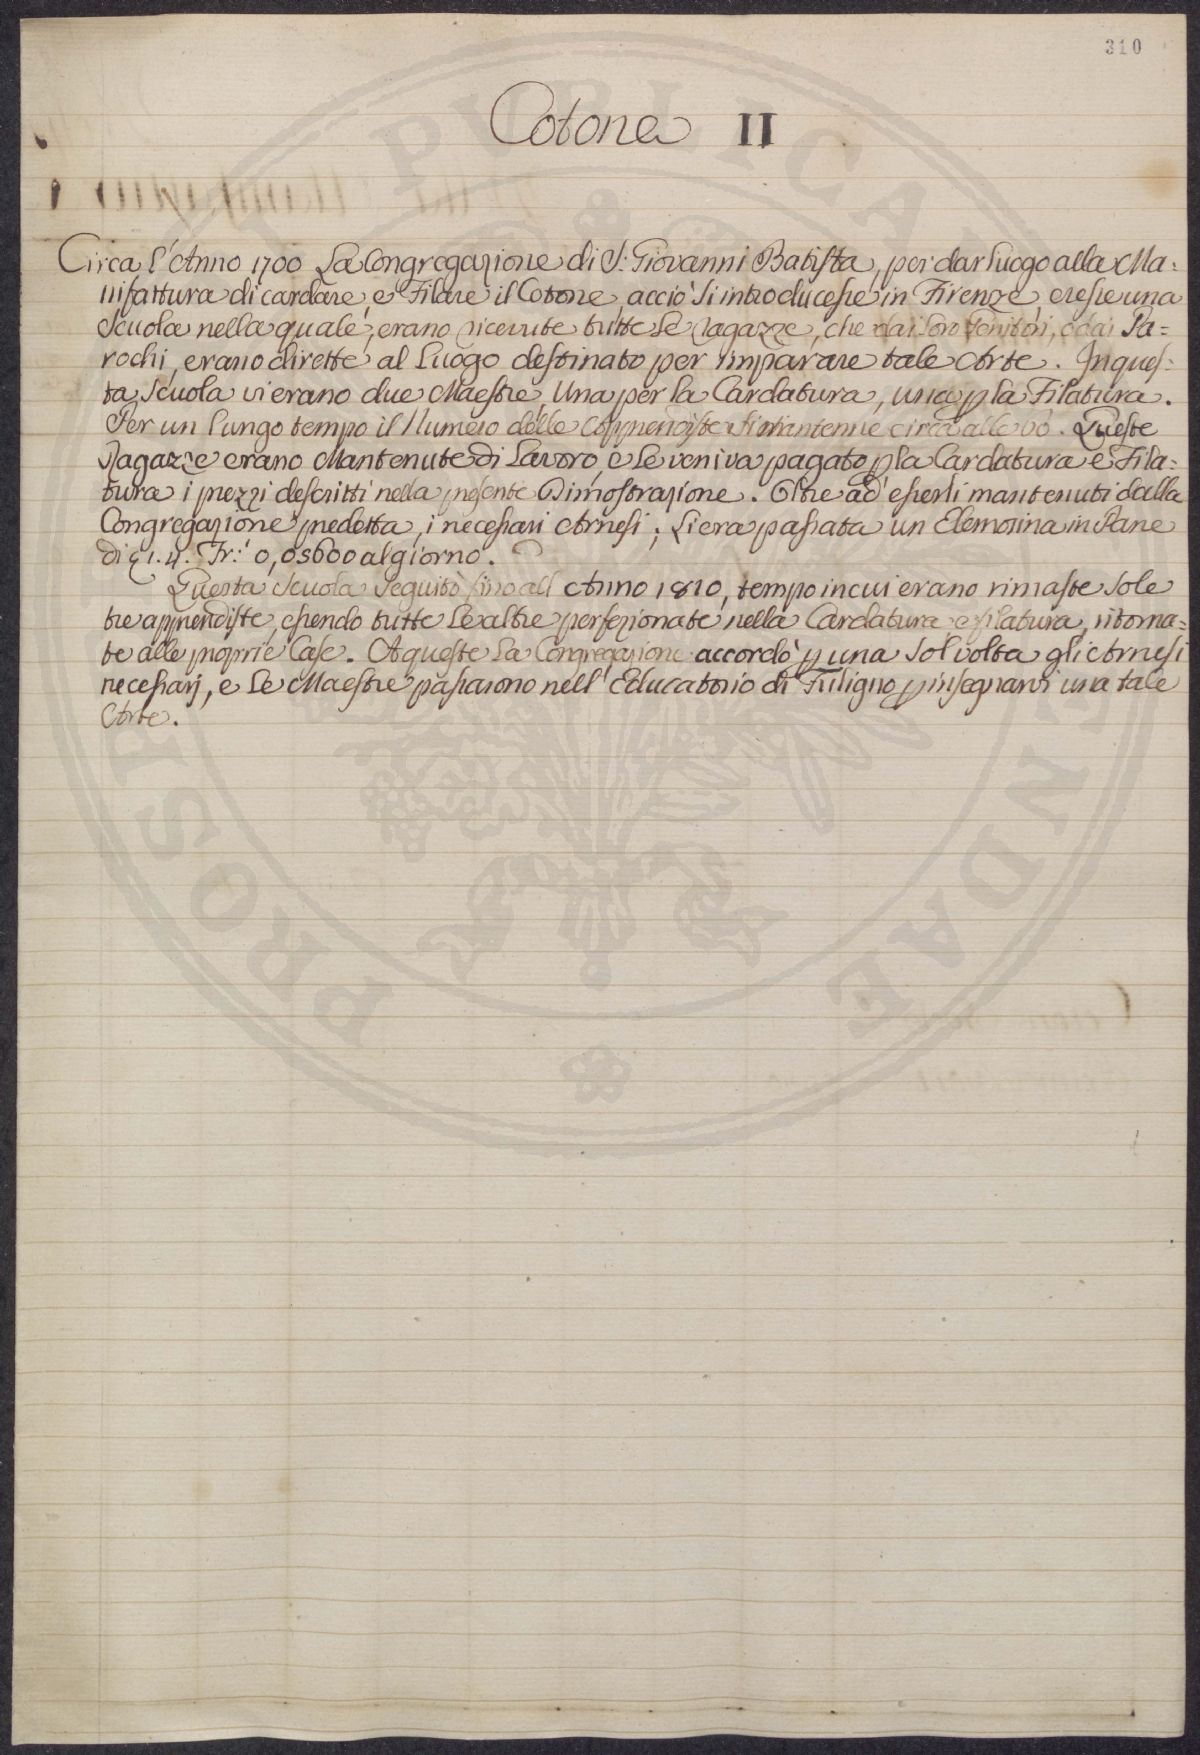 310
Cotone II
Circa l'Anno 1700 La Congregazione di S: Giovanni Batista, per dar luogo alla Ma=
nifattura di cardare, e Filare il Cotone, acciò s'introducesse in Firenze, eresse una
Scuola nella quale, erano ricevute tutte le Ragazze, che dai loro Genitori, o dai Pa=
rochi, erano dirette al Luogo destinato per imparare tale Arte. In ques=
ta Scuola vi erano due Maestre Una per la Cardatura, una p la Filatura.
Per un lungo tempo il Numero delle Apprendiste si mantenne circa alle 60. Queste
Ragazze erano Mantenute di Lavoro, e le veniva pagato p la Cardatura e Fila=
tura i prezzi descritti nella presente Dimostrazione. Oltre ad' esserli mantenuti dalla
Congregazione predetta, i necessari Arnesi; Li era passata un Elemosina in Pane
di 1. 4. Fr: 0,05600 al giorno.
Questa Scuola seguitò fino all' Anno 1810, tempo in cui erano rimaste sole
tre apprendiste, essendo tutte le altre perfezionate nella Cardatura e filatura, ritorna=
te alle proprie Case. A queste La Congregazione accordò p una sol volta gli Arnesi
necessarj, e le Maestre passarono nell' Educatorio di Fuligno p insegnarvi una tale
Arte.
PUBLICAE
PROSPE
NDAE